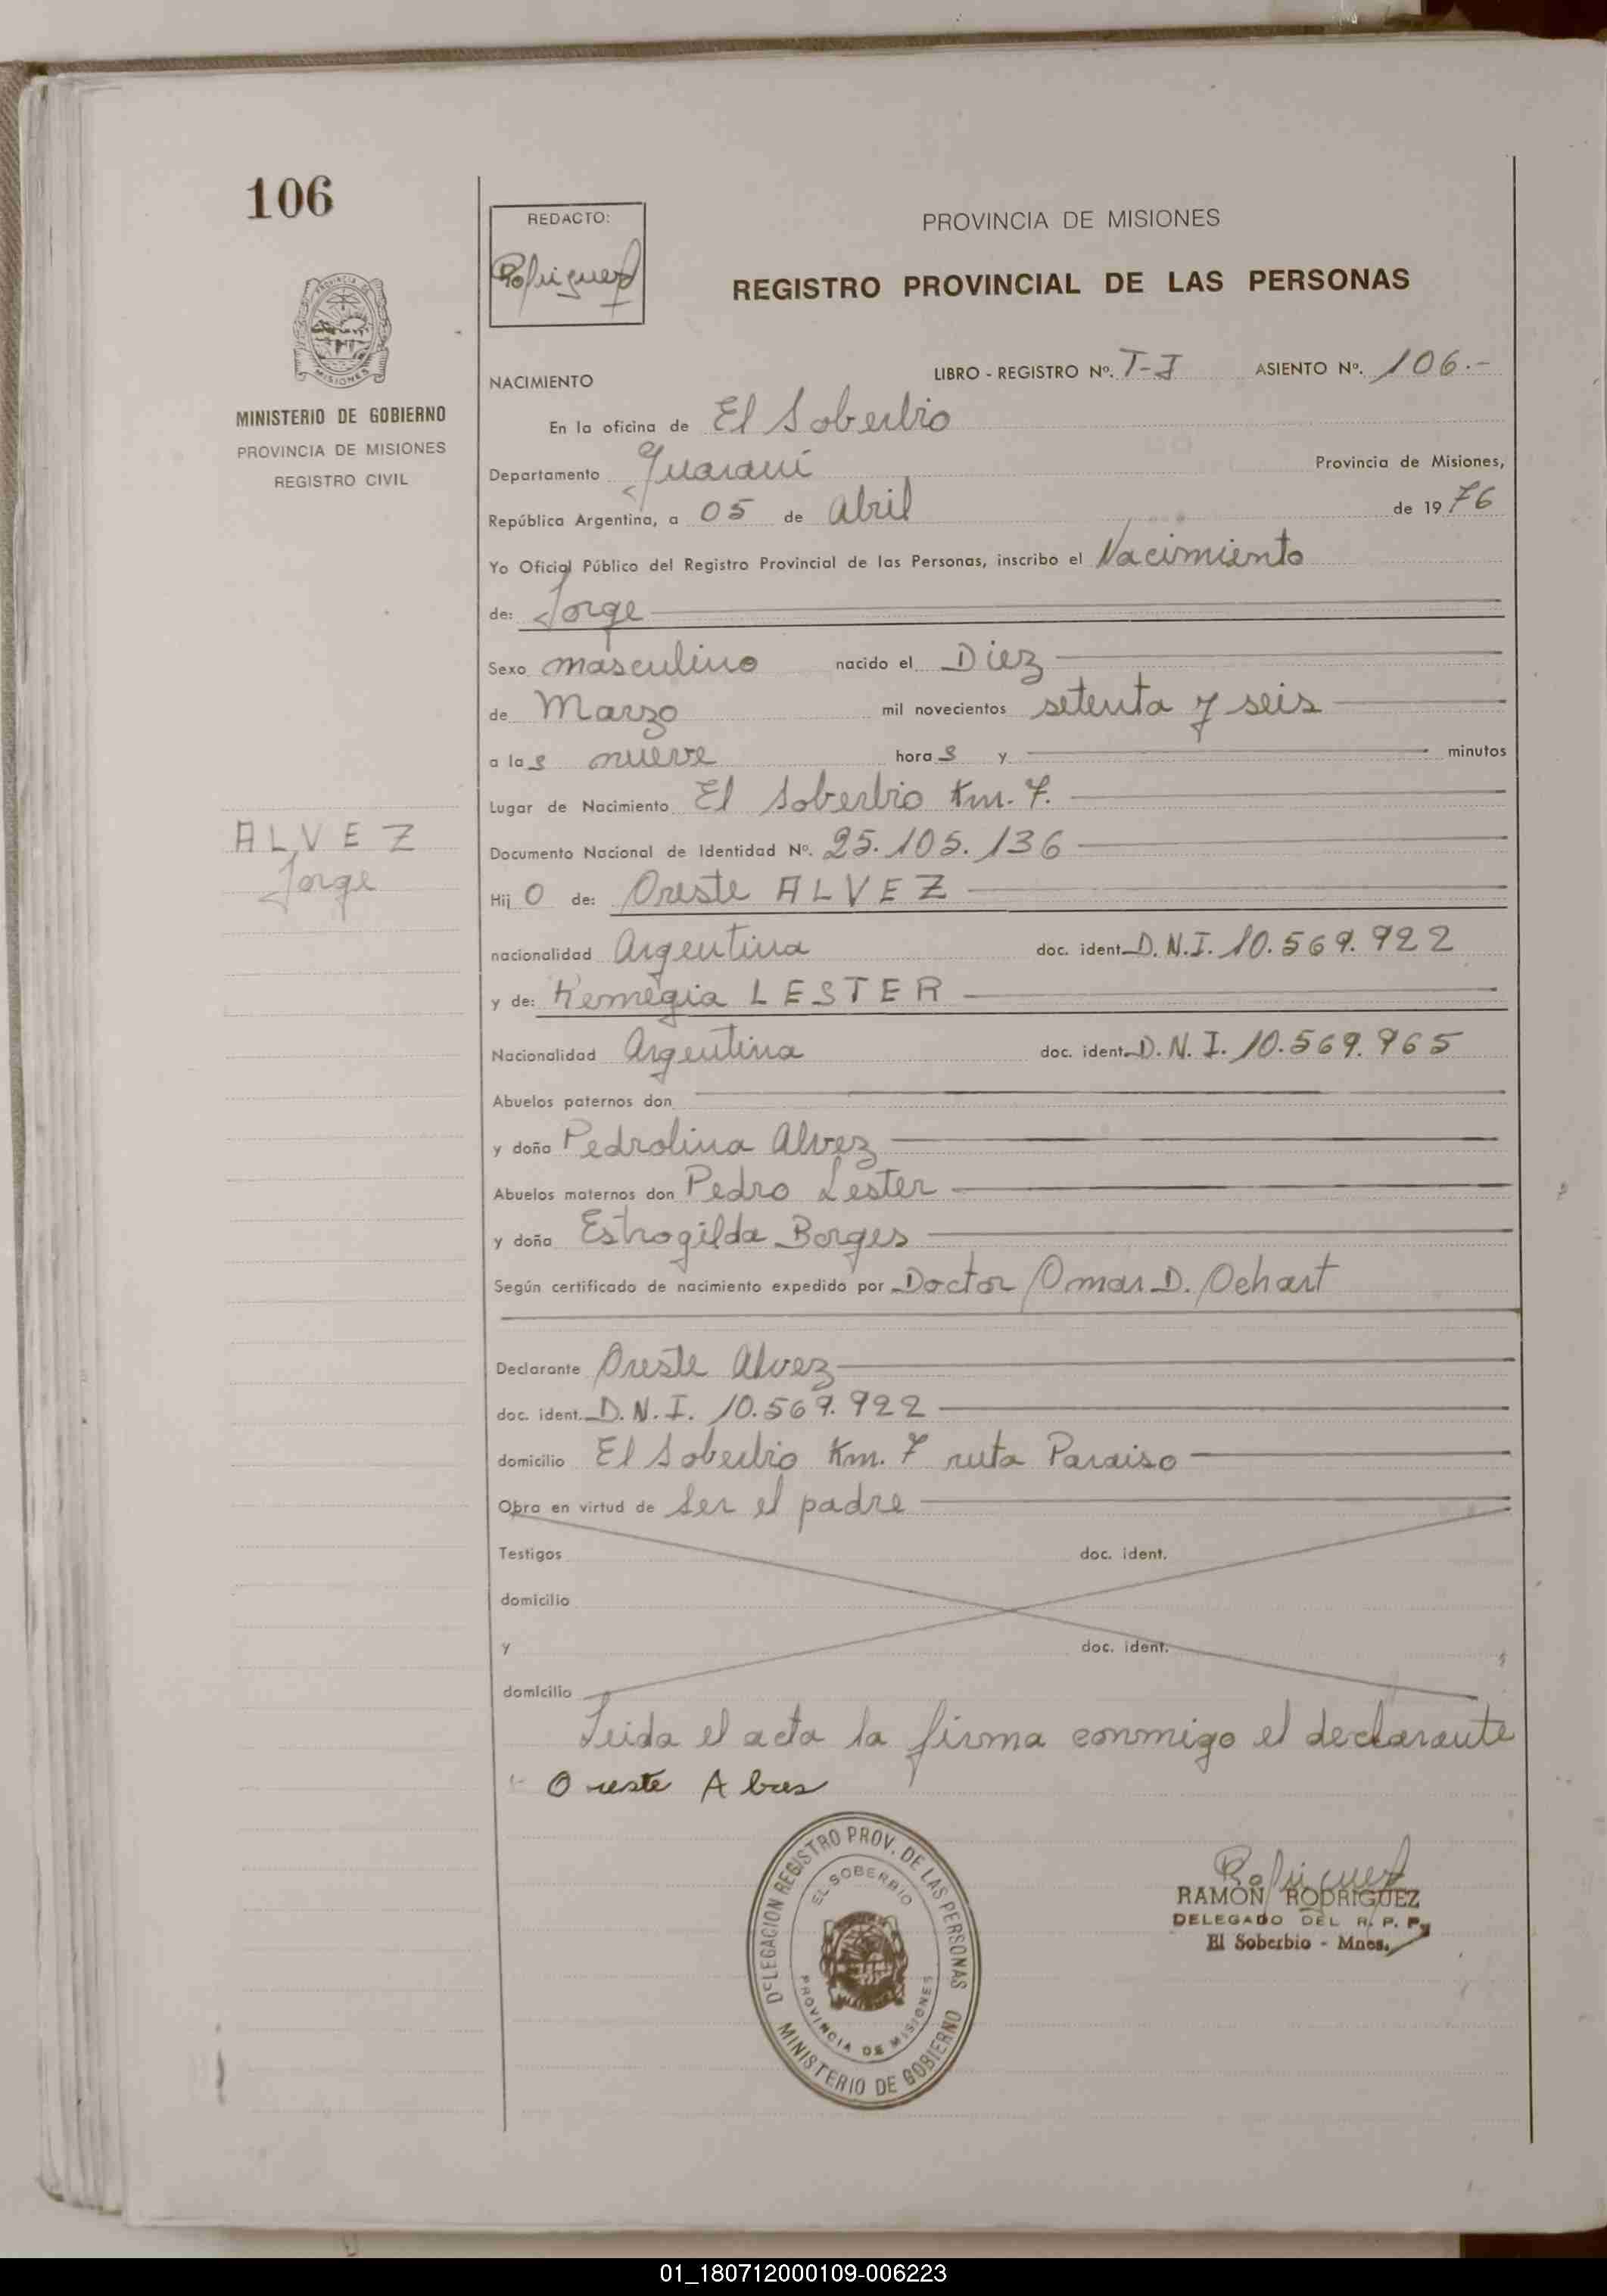 106
REDACTO:
Rodriguez
PROVINCIA DE MISIONES
REGISTRO PROVINCIAL DE LAS PERSONAS
MINISTERIO DE GOBIERNO
PROVINCIA DE MISIONES
REGISTRO CIVIL
NACIMIENTO LIBRO - REGISTRO Nº. T-I ASIENTO Nº. 106.-
En la oficina de El Soberbio
Departamento Guaraní Provincia de Misiones,
República Argentina, a 05 de Abril de 1976
Yo Oficial Público del Registro Provincial de las Personas, inscribo el Nacimiento
de: Jorge
Sexo masculino nacido el Diez
de Marzo mil novecientos setenta y seis
a las nueve horas y minutos
Lugar de Nacimiento El Soberbio Km. 7.
ALVEZ
Jorge
Documento Nacional de Identidad Nº. 25.105.136
Hijo de: Oreste ALVEZ
nacionalidad Argentina doc. ident. D.N.I. 10.569.922
y de: Remegia LESTER
Nacionalidad Argentina doc. ident. D.N.I. 10.569.965
Abuelos paternos don
y doña Pedrolina Alvez
Abuelos maternos don Pedro Lester
y doña Estrogilda Borges
Según certificado de nacimiento expedido por Doctor Omar D. Ochart
Declarante Oreste Alvez
doc. ident. D.N.I. 10.569.922
domicilio El Soberbio Km. 7 ruta Paraiso
Obra en virtud de Ser el padre
Testigos doc. ident.
domicilio
y doc. ident.
domicilio
Leida el acta la firma conmigo el declarante
Oreste Alves
DELEGACION REGISTRO PROV. DE LAS PERSONAS
EL SOBERBIO
PROVINCIA DE MISIONES
MINISTERIO DE GOBIERNO
Rodriguez
RAMON RODRIGUEZ
DELEGADO DEL R. P. P.
El Soberbio - Mnes.
01_180712000109-006223